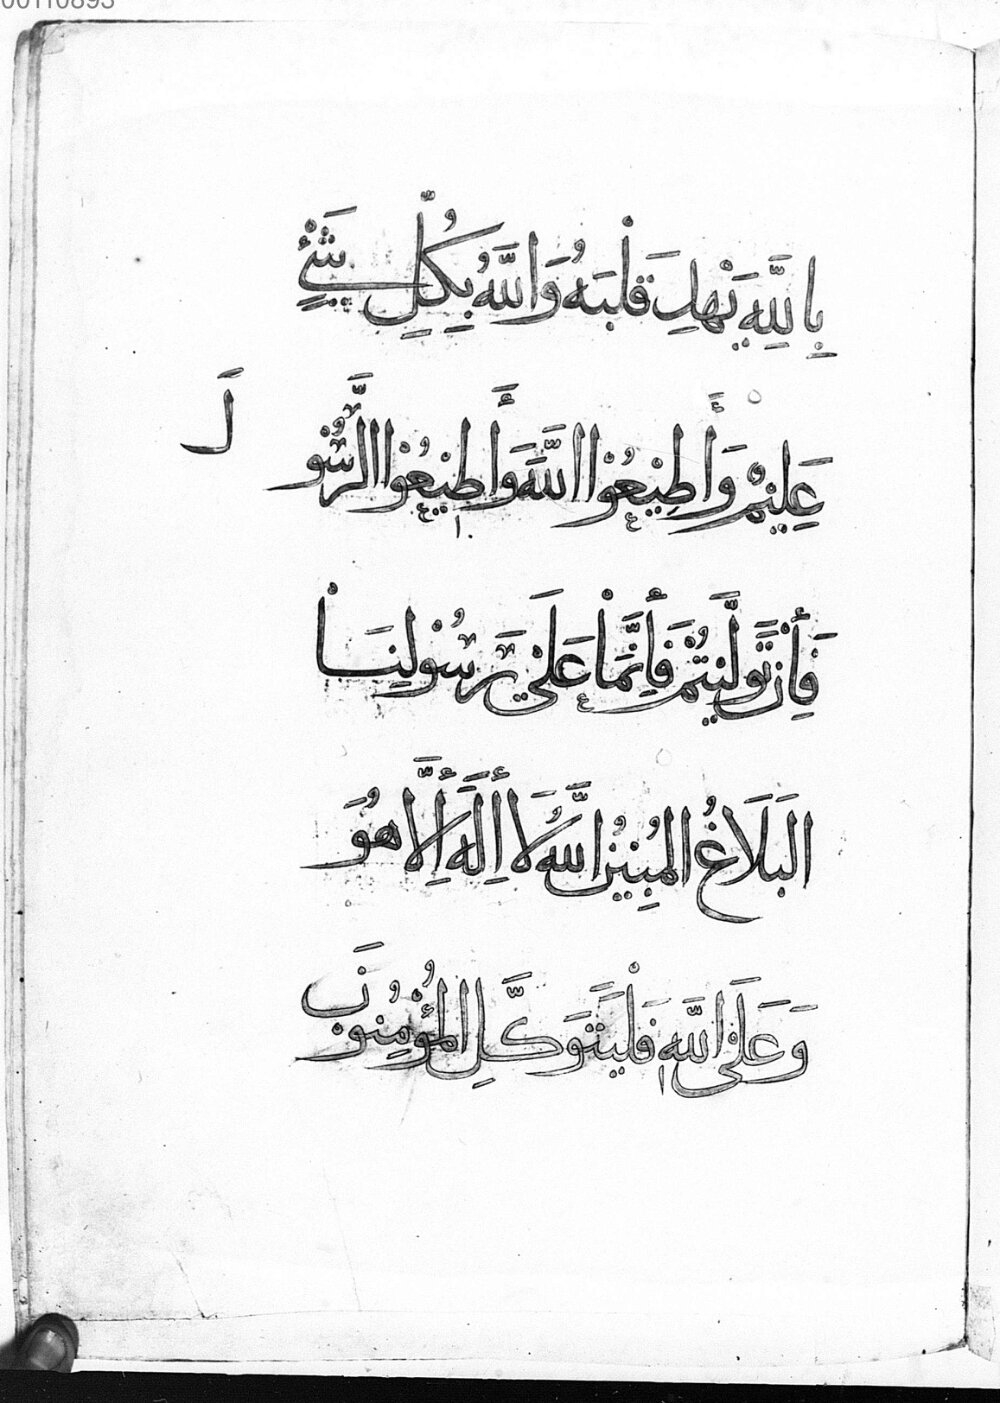 00110893
بِاللَّهِ يَهْدِ قَلْبَهُ وَاللَّهُ بِكُلِّ شَيْءٍ
عَلِيمٌ وَأَطِيعُوا اللَّهَ وَأَطِيعُوا الرَّسُو
لَ
فَإِنْ تَوَلَّيْتُمْ فَإِنَّمَا عَلَىٰ رَسُولِنَا
الْبَلَاغُ الْمُبِينُ اللَّهُ لَا إِلَٰهَ إِلَّا هُوَ
وَعَلَى اللَّهِ فَلْيَتَوَكَّلِ الْمُؤْمِنُونَ